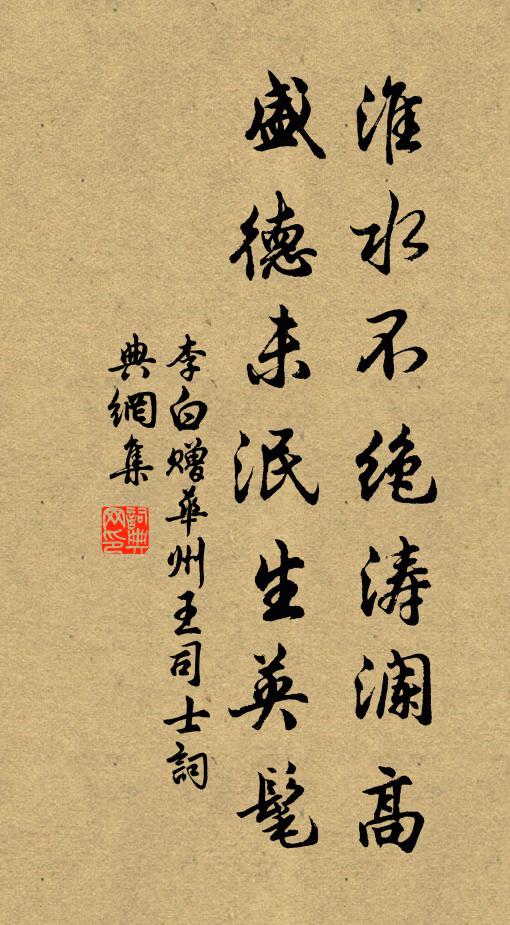 淮水不绝涛澜高
盛德未泯生英髦
李白赠華州王司士詞
典網集
詞典網印